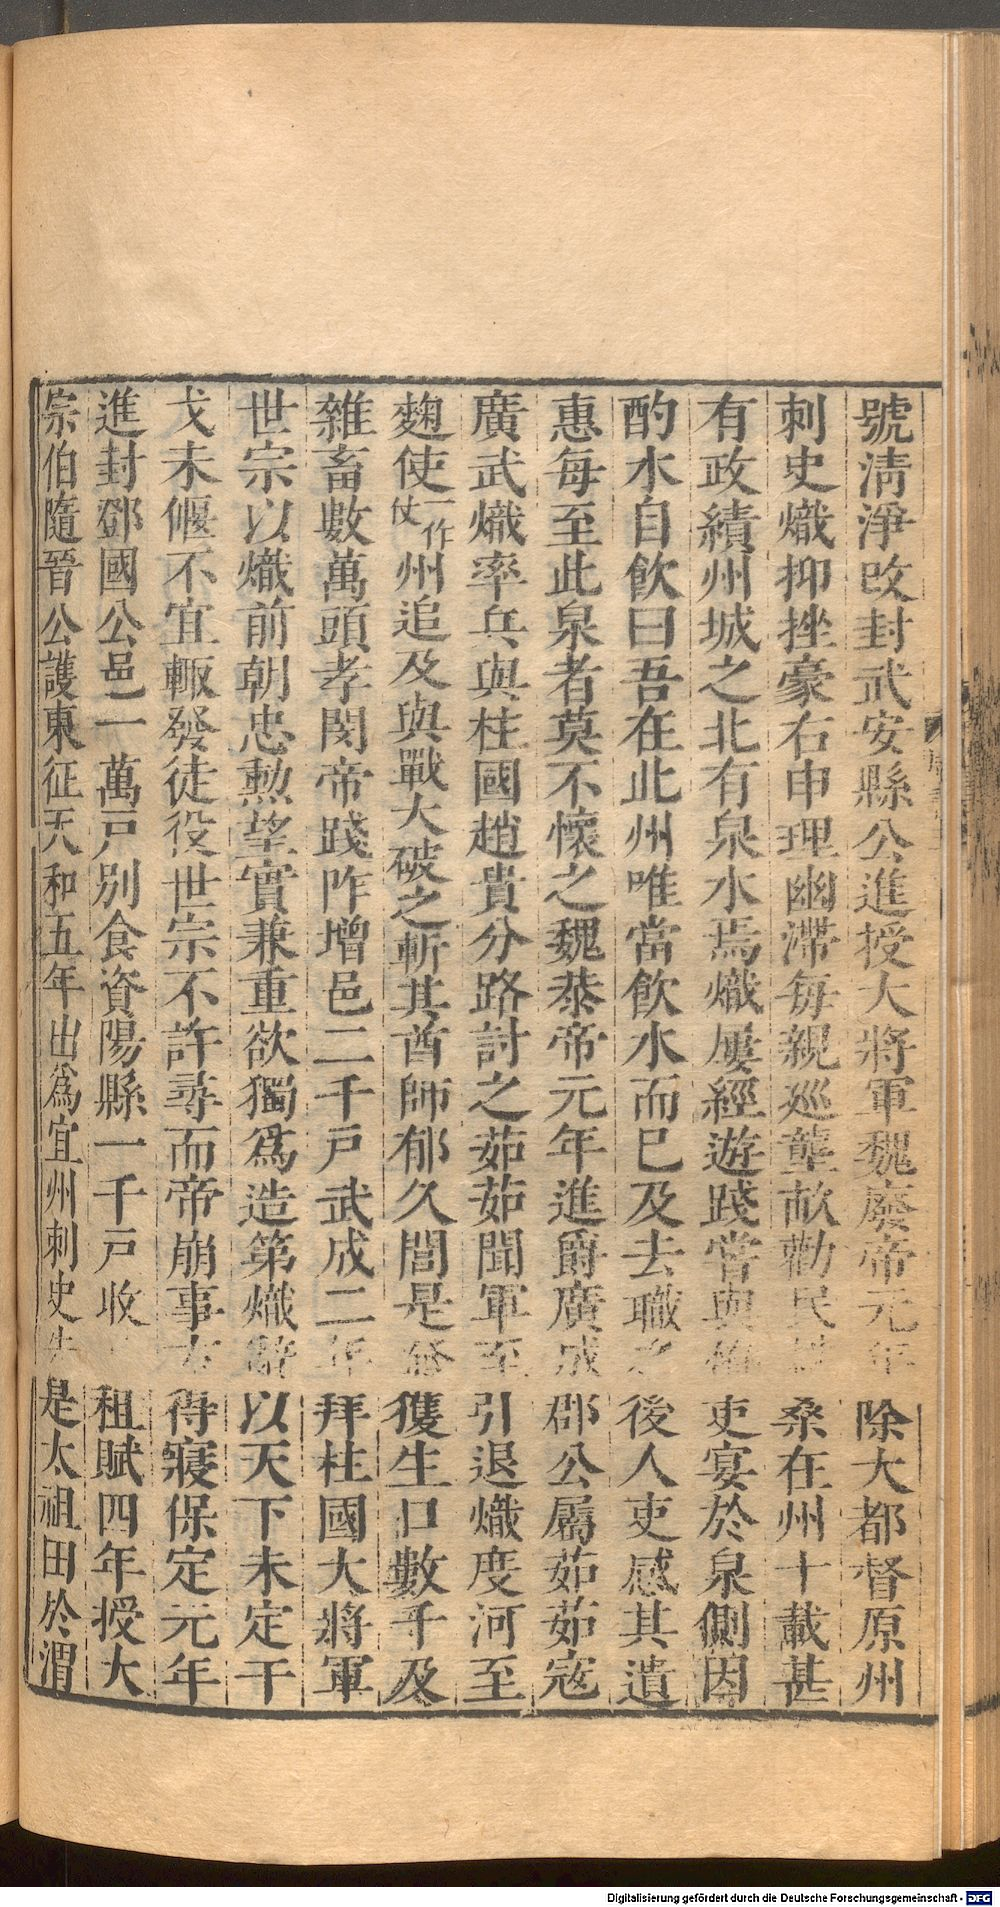 號清淨改封武安縣公進授大將軍魏廢帝元年除大都督原州
刺史熾抑挫豪右申理幽滯每親巡壟畝勸民桑在州十載甚
有政績州城之北有泉水焉熾屢經遊踐嘗與吏宴於泉側因
酌水自飲曰吾在此州唯當飲水而已及去職之後人吏感其遺
惠每至此泉者莫不懷之魏恭帝元年進爵廣成郡公屬茹茹寇
廣武熾率兵與柱國趙貴分路討之茹茹聞軍至引退熾度河至
麴使一作伏州追及與戰大破之斬其酋帥郁久閭是發獲生口數千及
雜畜數萬頭孝閔帝踐阼增邑二千戶武成二年拜柱國大將軍
世宗以熾前朝忠勲望實兼重欲獨爲造第熾辭以天下未定干
戈未偃不宜輙發徒役世宗不許尋而帝崩事方得寢保定元年
進封鄧國公邑一萬戸別食資陽縣一千戸收租賦四年授大
宗伯隨晉公護東征天和五年出爲宜州刺史先是太祖田於渭
Digitalisierung gefördert durch die Deutsche Forschungsgemeinschaft - DFG